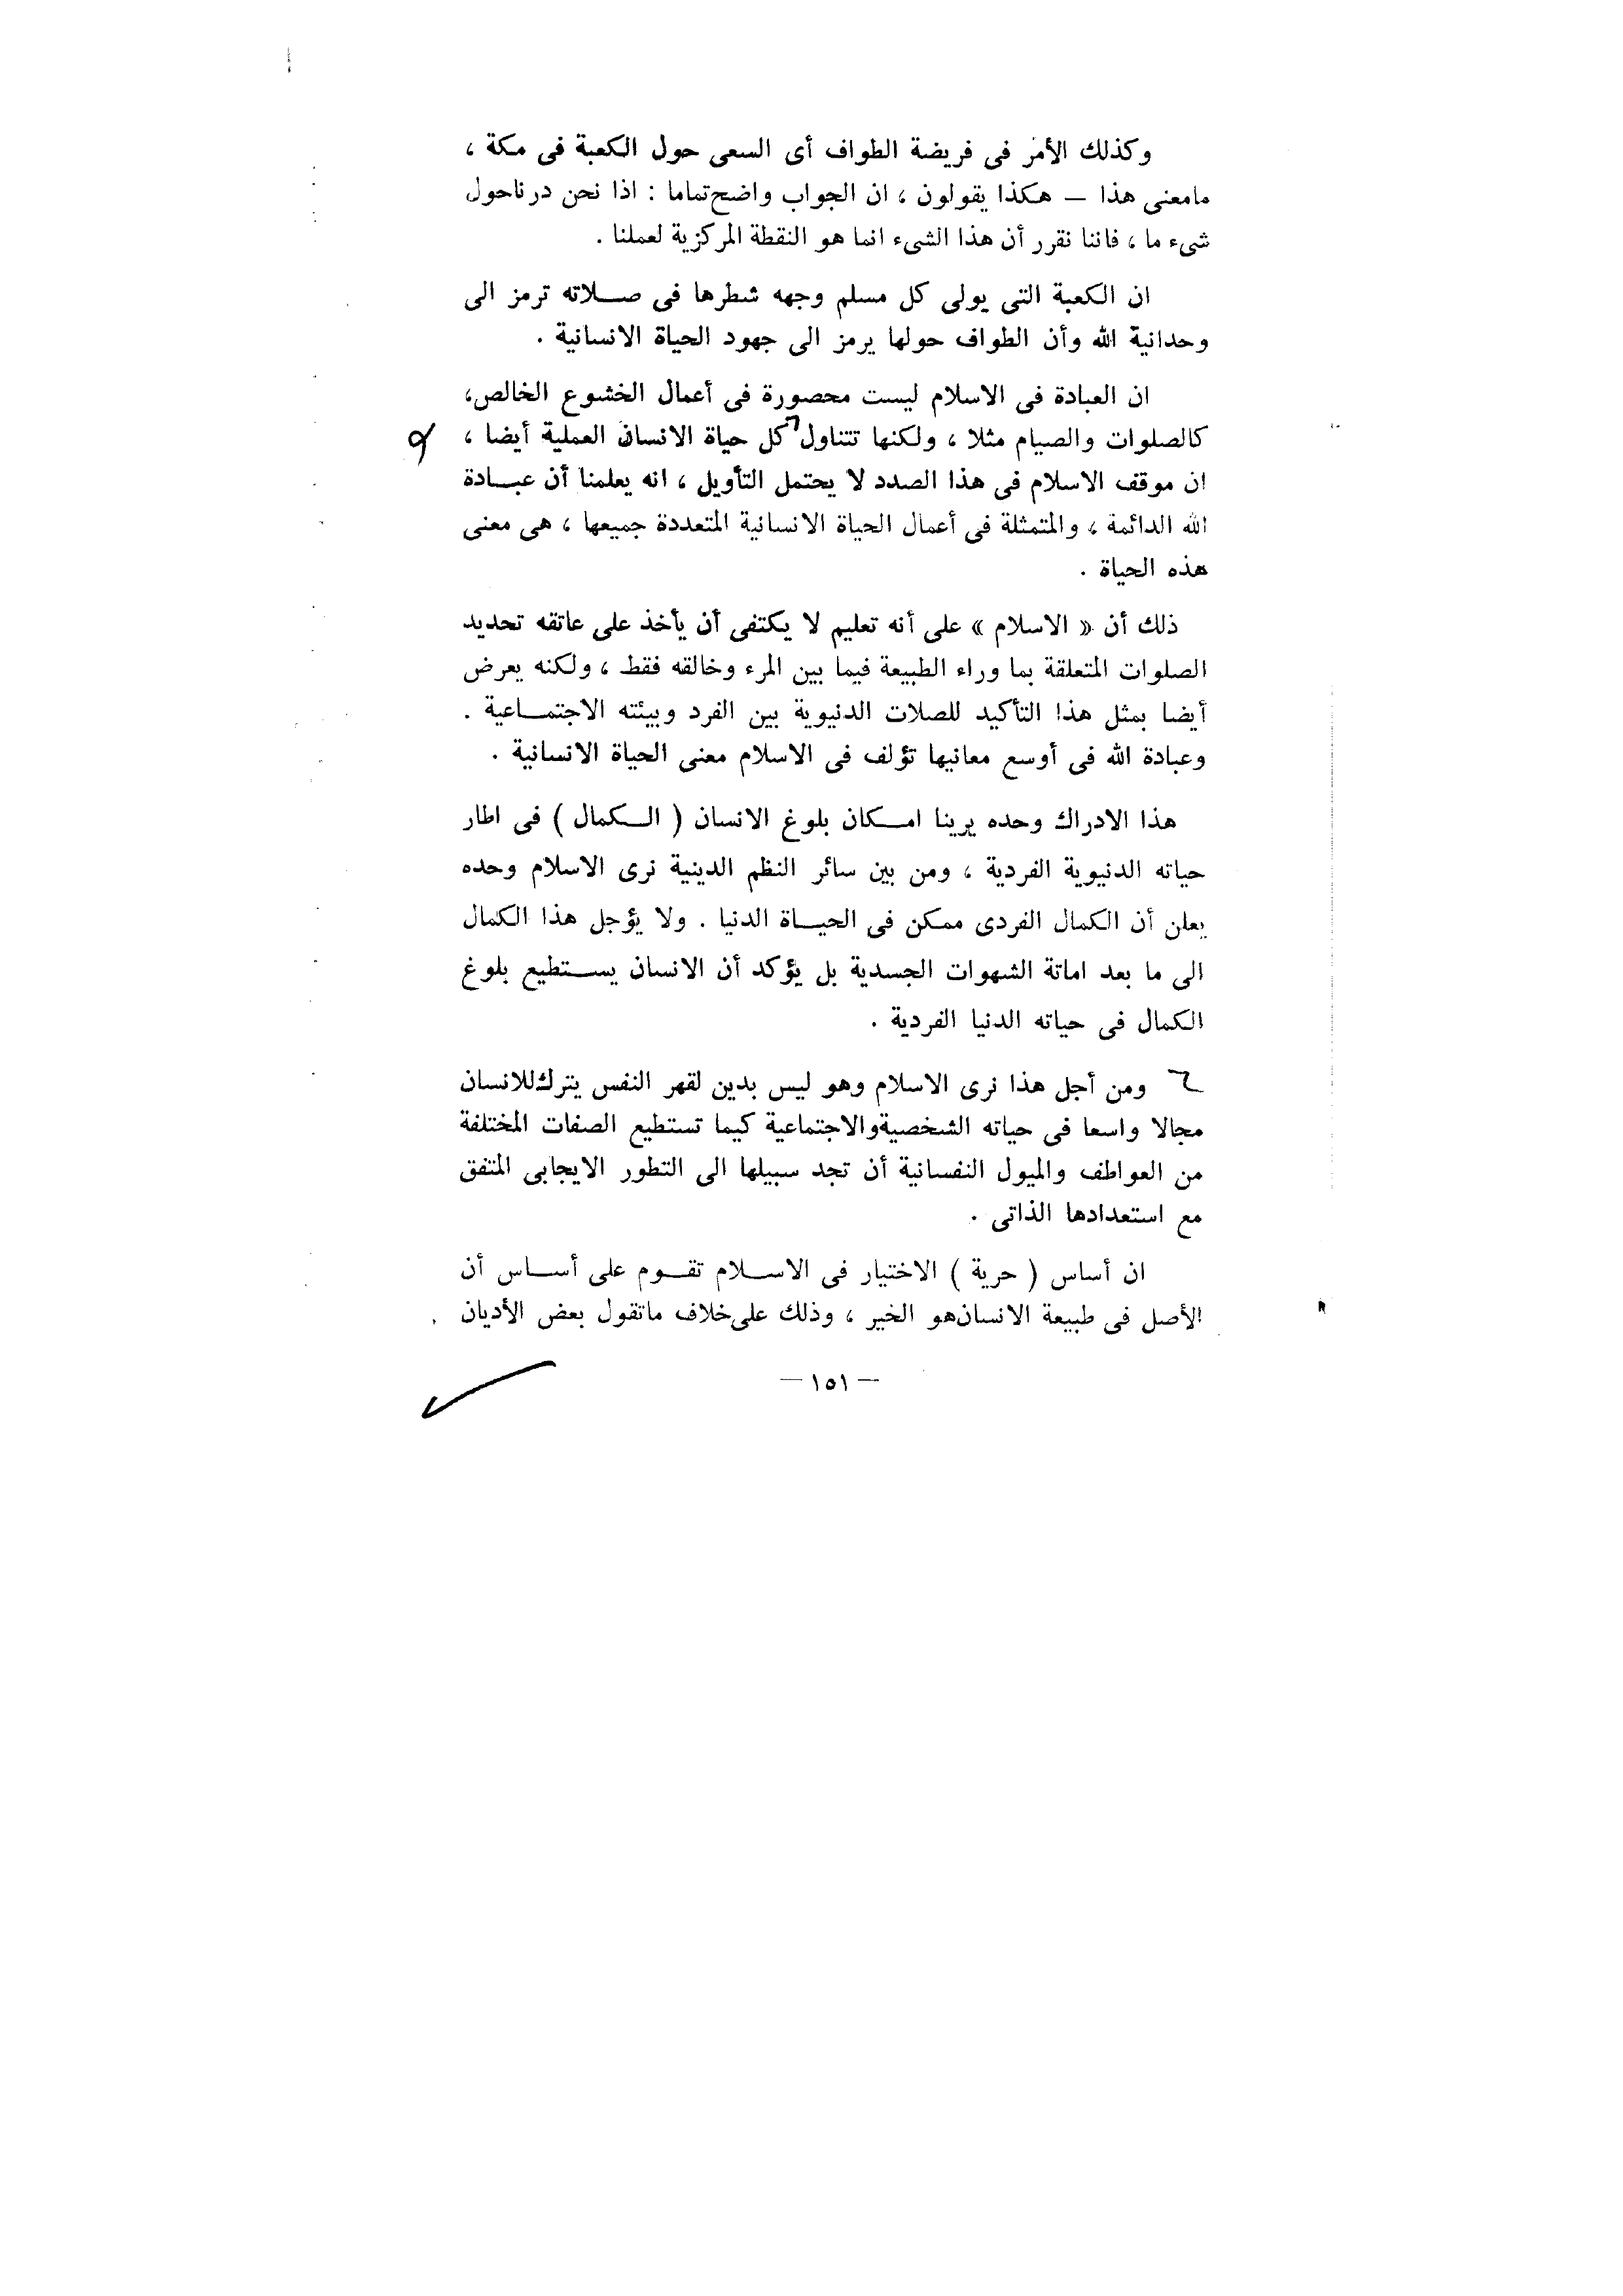 وكذلك الأمر فى فريضة الطواف أى السعى حول الكعبة فى مكة ،
مامعنى هذا — هكذا يقولون ، ان الجواب واضح تماما : اذا نحن درناحول
شىء ما ، فاننا نقرر أن هذا الشىء انما هو النقطة المركزية لعملنا .
ان الكعبة التى يولى كل مسلم وجهه شطرها فى صلاته ترمز الى
وحدانية الله وأن الطواف حولها يرمز الى جهود الحياة الانسانية .
ان العبادة فى الاسلام ليست محصورة فى أعمال الخشوع الخالص،
كالصلوات والصيام مثلا ، ولكنها تتناول كل حياة الانسان العملية أيضا ،
ان موقف الاسلام فى هذا الصدد لا يحتمل التأويل ، انه يعلمنا أن عبادة
الله الدائمة ، والمتمثلة فى أعمال الحياة الانسانية المتعددة جميعها ، هى معنى
هذه الحياة .
ذلك أن « الاسلام » على أنه تعليم لا يكتفى أن يأخذ على عاتقه تحديد
الصلوات المتعلقة بما وراء الطبيعة فيما بين المرء وخالقه فقط ، ولكنه يعرض
أيضا بمثل هذا التأكيد للصلات الدنيوية بين الفرد وبيئته الاجتماعية .
وعبادة الله فى أوسع معانيها تؤلف فى الاسلام معنى الحياة الانسانية .
هذا الادراك وحده يرينا امكان بلوغ الانسان ( الكمال ) فى اطار
حياته الدنيوية الفردية ، ومن بين سائر النظم الدينية نرى الاسلام وحده
يعلن أن الكمال الفردى ممكن فى الحياة الدنيا . ولا يؤجل هذا الكمال
الى ما بعد اماتة الشهوات الجسدية بل يؤكد أن الانسان يستطيع بلوغ
الكمال فى حياته الدنيا الفردية .
ومن أجل هذا نرى الاسلام وهو ليس بدين لقهر النفس يترك للانسان
مجالا واسعا فى حياته الشخصية والاجتماعية كيما تستطيع الصفات المختلفة
من العواطف والميول النفسانية أن تجد سبيلها الى التطور الايجابى المتفق
مع استعدادها الذاتى .
ان أساس ( حرية ) الاختيار فى الاسلام تقوم على أساس أن
الأصل فى طبيعة الانسان هو الخير ، وذلك على خلاف ماتقول بعض الأديان
— ١٥١ —